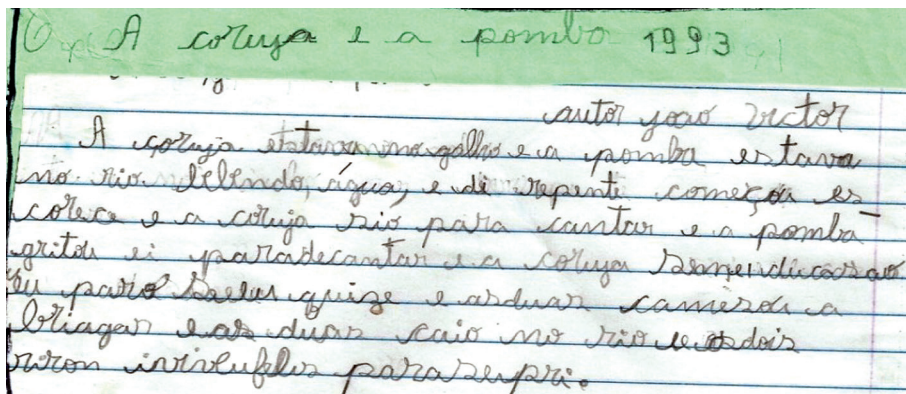 A coruja e a pomba 1993
autor joao Victor
A coruja estava no galho e a pomba estava
no rio bebendo, água, e di repente começou es
corece e a coruja sio para cantar e a pomba
gritou ei paradecantar e a coruja
eu paro seeu quize e asduas comesou a
briagar e as duas caio no rio e osdois
parasenpri.